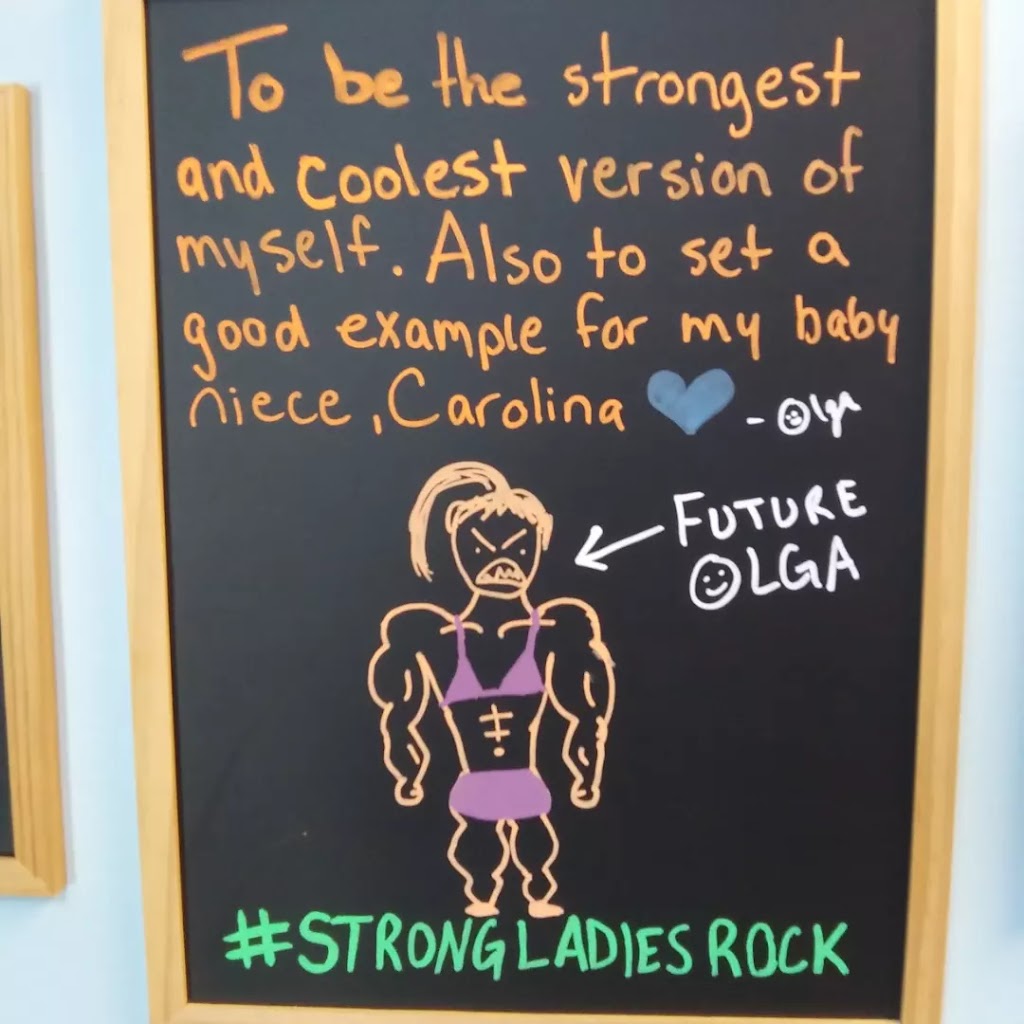 To be the strongest
and coolest version of
myself. Also to set a
good example for my baby
niece, Carolina
- Olga
FUTURE
OLGA
#STRONGLADIESROCK